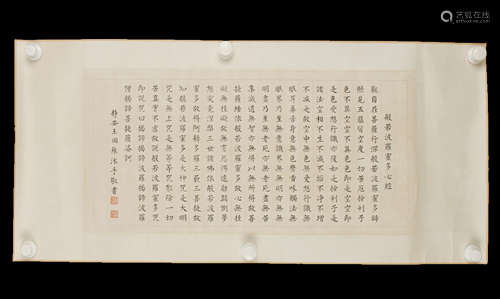 艺狐在线
般若波羅蜜多心經
觀自在菩薩行深般若波羅蜜多時
照見五蘊皆空度一切苦厄舍利子
色不異空空不異色色即是空空即
是色受想行識亦復如是舍利子是
諸法空相不生不滅不垢不淨不增
不減是故空中無色無受想行識無
眼耳鼻舌身意無色聲香味觸法無
眼界乃至無意識界無無明亦無無
明盡乃至無老死亦無老死盡無苦
集滅道無智亦無得以無所得故菩
提薩埵依般若波羅蜜多故心無罣
礙無罣礙故無有恐怖遠離顛倒夢
想究竟涅槃三世諸佛依般若波羅
蜜多故得阿耨多羅三藐三菩提故
知般若波羅蜜多是大神咒是大明
咒是無上咒是無等等咒能除一切
苦真實不虛故說般若波羅蜜多咒
即說咒曰揭諦揭諦波羅揭諦波羅
僧揭諦菩提薩婆訶
靜安王國維沐手敬書